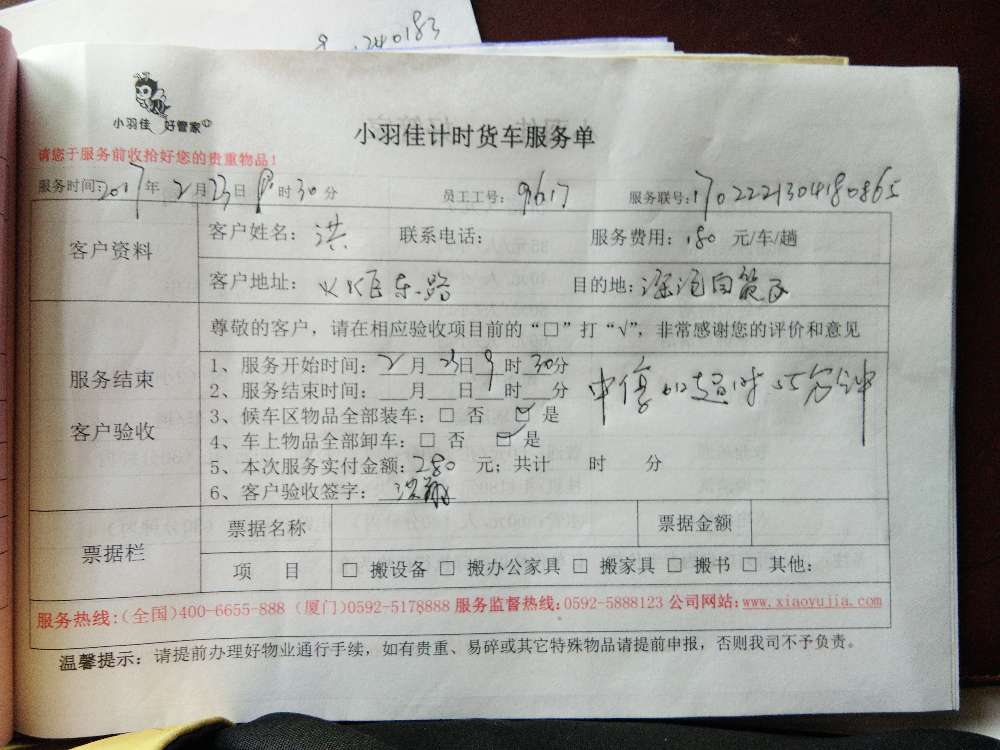 240183
小羽佳 好管家
小羽佳计时货车服务单
请您于服务前收拾好您的贵重物品！
服务时间：2017年2月23日 时30分 员工工号：9617 服务联号：17022221304180865
客户资料
客户姓名：洪 联系电话： 服务费用：180 元/车/趟
客户地址：火炬东路 目的地：
尊敬的客户，请在相应验收项目前的“□”打“√”，非常感谢您的评价和意见
服务结束
客户验收
1、服务开始时间：2月23日9时30分
2、服务结束时间：___月___日___时___分
中停 超时55分钟
3、候车区物品全部装车：□ 否 ☑ 是
4、车上物品全部卸车：□ 否 ☑ 是
5、本次服务实付金额：280 元；共计 时 分
6、客户验收签字：洪
票据栏
票据名称 票据金额
项 目 □ 搬设备 □ 搬办公家具 □ 搬家具 □ 搬书 □ 其他：
服务热线：(全国)400-6655-888 (厦门)0592-5178888 服务监督热线：0592-5888123 公司网站：www.xiaoyujia.com
温馨提示：请提前办理好物业通行手续，如有贵重、易碎或其它特殊物品请提前申报，否则我司不予负责。